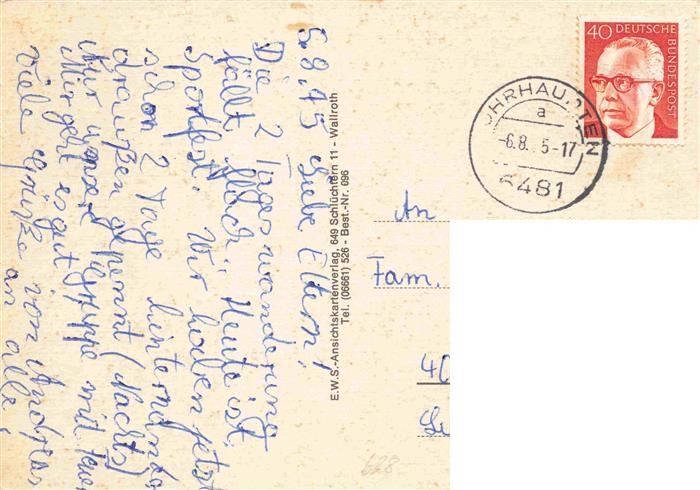 5.8.75 Liebe Eltern!
Die 2 Tageswanderung
fällt flach. Heute ist
Sportfest. Wir haben jetzt
schon 2 Tage hintereinander
draußen gepennt (Nachts)
Nur unsere Gruppe mit
Mir geht es gut
viele Grüße von Andreas
an alle!
E.W.S.-Ansichtskartenverlag, 649 Schlüchtern 11 - Wallroth
Tel. (06661) 526 - Best.-Nr. 096
40 DEUTSCHE
BUNDESPOST
OHRHAUPTEN
a
-6.8. 5-17
6481
An
Fam.
40
628